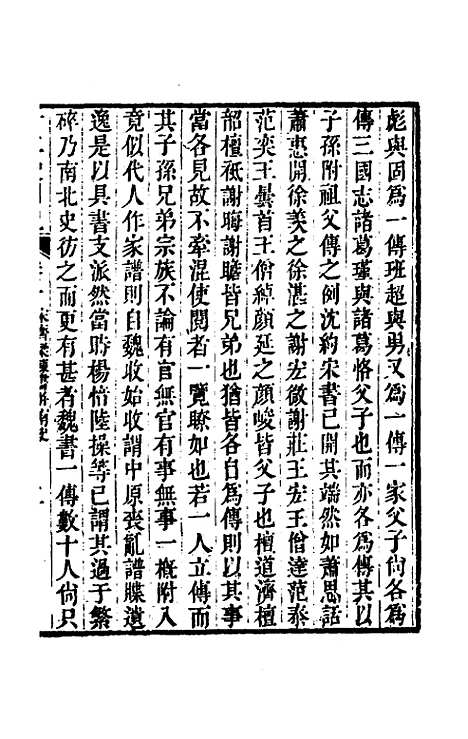 彪與固爲一傳班超與勇又爲一傳一家父子尙各爲
傳三國志諸葛瑾與諸葛恪父子也而亦各爲傳其以
子孫附祖父傳之例沈約宋書已開其端然如蕭思話
蕭惠開徐羨之徐湛之謝宏微謝莊王宏王僧達范泰
范奕王曇首王僧綽顏延之顏峻皆父子也檀道濟檀
韶檀祇謝晦謝瞻皆兄弟也猶皆各自爲傳則以其事
當各見故不牽混使閱者一覽瞭如也若一人立傳而
其子孫兄弟宗族不論有官無官有事無事一槪附入
竟似代人作家譜則自魏收始收謂中原喪亂譜牒遺
逸是以具書支派然當時楊愔陸操等已謂其過于繁
碎乃南北史仿之而更有甚者魏書一傳數十人尙只